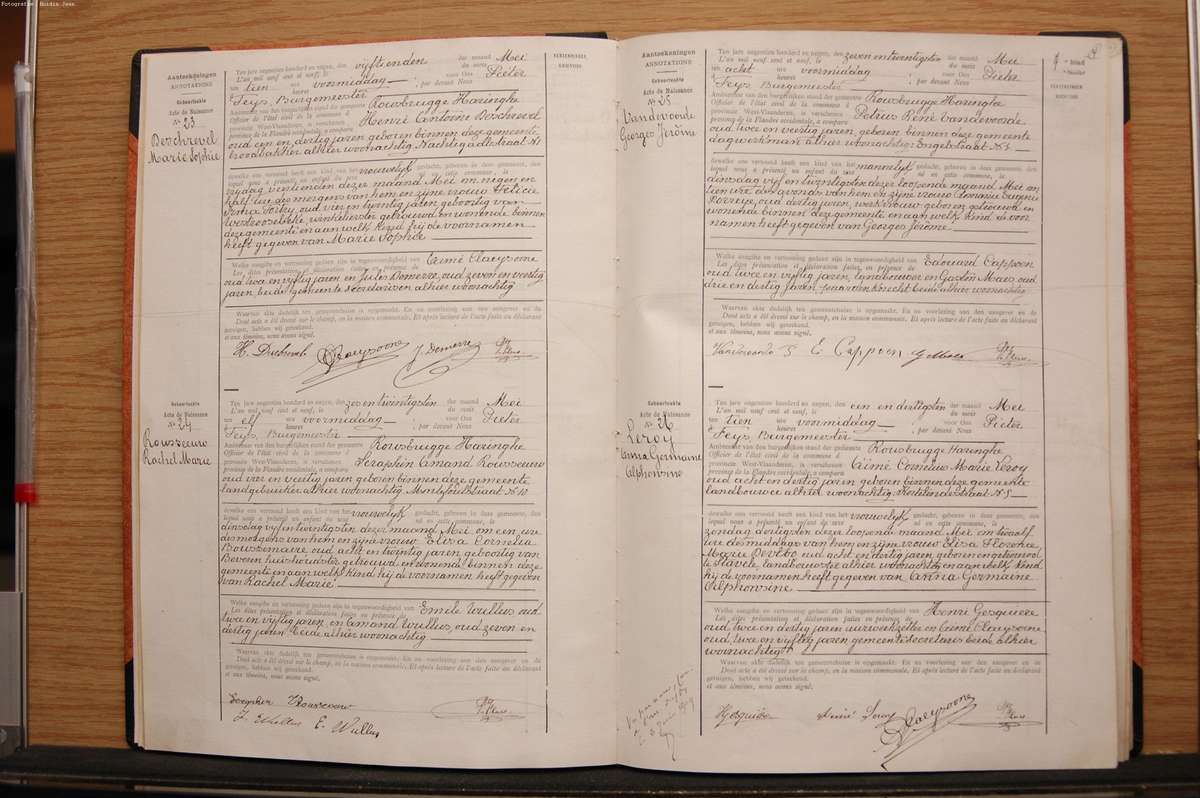 Fotografie: Boidin Jean
Aanteekeningen
ANNOTATIONS
Geboorteakte
Acte de Naissance
N° 23
Beschrevel
Marie Sophie
Ten jare negentien honderd en negen, den vijftienden der maand Mei
L'an mil neuf cent et neuf, le du mois
te tien ure voormiddag voor Ons Pieter
à heures par devant Nous
Feys, Burgemeester
Ambtenaar van den burgerlijken stand der gemeente Rousbrugge Haringhe
Officier de l'état civil de la commune d
provincie West-Vlaanderen, is verschenen Henri Antoine Beschrevel
province de la Flandre occidentale, a comparu
oud een en dertig jaren geboren binnen deze gemeente
broodbakker alhier woonachtig
dewelke ons vertoond heeft een kind van het vrouwelijk geslacht, geboren in deze gemeente, den
lequel nous a présenté un enfant du sexe né en cette commune, le
vrijdag veertienden dezer maand Mei om negen en
half ure des morgens van hem en zijne vrouw Felicie
Irma oud vier en twintig jaren geboortig van
winkelierster getrouwd en wonende binnen
deze gemeente en aan welk kind hij de voornamen
heeft gegeven van Marie Sophie
Welke aangifte en vertooning gedaan zijn in tegenwoordigheid van Crimé Claeysoone
Les dites présentation et déclaration faites en présence de
oud twee en vijftig jaren en Jules Domerre, oud zeven en veertig
jaren, beide gemeente secretarissen alhier woonachtig
Waarvan akte dadelijk ten gemeentehuize is opgemaakt. En na voorlezing aan den aangever en de
Dont acte a été dressé sur le champ, en la maison communale. Et après lecture de l'acte faite au déclarant
getuigen, hebben wij geteekend.
et aux témoins, nous avons signé.
Claeysoone J. Domerre
Geboorteakte
Acte de Naissance
N° 24
Rousseeuw
Rachel Marie
Ten jare negentien honderd en negen, den zes en twintigsten der maand Mei
L'an mil neuf cent et neuf, le du mois
te elf ure voormiddag voor Ons Pieter
à heures par devant Nous
Feys, Burgemeester
Ambtenaar van den burgerlijken stand der gemeente Rousbrugge Haringhe
Officier de l'état civil de la commune d
provincie West-Vlaanderen, is verschenen Seraphin Amand Rousseeuw
province de la Flandre occidentale, a comparu
oud vier en veertig jaren geboren binnen deze gemeente
landgebruiker alhier woonachtig N 10
dewelke ons vertoond heeft een kind van het vrouwelijk geslacht, geboren in deze gemeente, den
lequel nous a présenté un enfant du sexe né en cette commune, le
dinsdag vijf en twintigsten dezer maand Mei om een ure
des morgens van hem en zijne vrouw Elisa Cornelia
Boussemaere oud acht en twintig jaren geboortig van
Beveren huishoudster getrouwd en wonende binnen deze
gemeente en aan welk kind hij de voornamen heeft gegeven
van Rachel Marie
Welke aangifte en vertooning gedaan zijn in tegenwoordigheid van Emile Wullus oud
Les dites présentation et déclaration faites en présence de
twee en vijftig jaren en Amand Wullus, oud zeven en
dertig jaren beide alhier woonachtig
Waarvan akte dadelijk ten gemeentehuize is opgemaakt. En na voorlezing aan den aangever en de
Dont acte a été dressé sur le champ, en la maison communale. Et après lecture de l'acte faite au déclarant
getuigen, hebben wij geteekend.
et aux témoins, nous avons signé.
E. Wullus
Aanteekeningen
ANNOTATIONS
Geboorteakte
Acte de Naissance
N° 25
Vandevoorde
Georges Jerôme
Ten jare negentien honderd en negen, den zeven en twintigsten der maand Mei
L'an mil neuf cent et neuf, le du mois
te acht ure voormiddag voor Ons Pieter
à heures par devant Nous
Feys Burgemeester
Ambtenaar van den burgerlijken stand der gemeente Rousbrugge Haringhe
Officier de l'état civil de la commune d
provincie West-Vlaanderen, is verschenen Petrus René Vandevoorde
province de la Flandre occidentale, a comparu
oud twee en veertig jaren, geboren binnen deze gemeente
dagwerkman alhier woonachtig
dewelke ons vertoond heeft een kind van het mannelijk geslacht, geboren in deze gemeente, den
lequel nous a présenté un enfant du sexe né en cette commune, le
dinsdag vijf en twintigsten dezer loopende maand Mei om
tien ure des avonds van hem en zijne vrouw Romanie Eugenie
oud dertig jaren, werkvrouw geboren getrouwd en
wonende binnen deze gemeente en aan welk kind hij de voor
namen heeft gegeven van Georges Jerôme
Welke aangifte en vertooning gedaan zijn in tegenwoordigheid van Edouard Cappoen
Les dites présentation et déclaration faites en présence de
oud twee en vijftig jaren, landbouwer en Gaston Maes oud
drie en dertig jaren, paardenknecht beide alhier woonachtig
Waarvan akte dadelijk ten gemeentehuize is opgemaakt. En na voorlezing aan den aangever en de
Dont acte a été dressé sur le champ, en la maison communale. Et après lecture de l'acte faite au déclarant
getuigen, hebben wij geteekend.
et aux témoins, nous avons signé.
E. Cappoen G Maes
Geboorteakte
Acte de Naissance
N° 26
Leroy
Anna Germaine
Alphonsine
Ten jare negentien honderd en negen, den een en dertigsten der maand Mei
L'an mil neuf cent et neuf, le du mois
te tien ure voormiddag voor Ons Pieter
à heures par devant Nous
Feys, Burgemeester
Ambtenaar van den burgerlijken stand der gemeente Rousbrugge Haringhe
Officier de l'état civil de la commune d
provincie West-Vlaanderen, is verschenen Crimé Cornelius Marie Leroy
province de la Flandre occidentale, a comparu
oud acht en dertig jaren geboren binnen deze gemeente
landbouwer alhier woonachtig
dewelke ons vertoond heeft een kind van het vrouwelijk geslacht, geboren in deze gemeente, den
lequel nous a présenté un enfant du sexe né en cette commune, le
zondag dertigsten dezer loopende maand Mei om twaalf
ure des middags van hem en zijne vrouw Elisa Florence
Marie oud acht en dertig jaren geboren en getrouwd
te Stavele, landbouwster alhier woonachtig en aan welk kind
hij de voornamen heeft gegeven van Anna Germaine
Alphonsine
Welke aangifte en vertooning gedaan zijn in tegenwoordigheid van Henri Gesquiere
Les dites présentation et déclaration faites en présence de
oud, twee en dertig jaren uurwerkzetter en Crimé Claeysoone
oud, twee en vijftig jaren, gemeentesecretaris beide alhier
woonachtig
Waarvan akte dadelijk ten gemeentehuize is opgemaakt. En na voorlezing aan den aangever en de
Dont acte a été dressé sur le champ, en la maison communale. Et après lecture de l'acte faite au déclarant
getuigen, hebben wij geteekend.
et aux témoins, nous avons signé.
HGesquiere Leroy Claeysoone